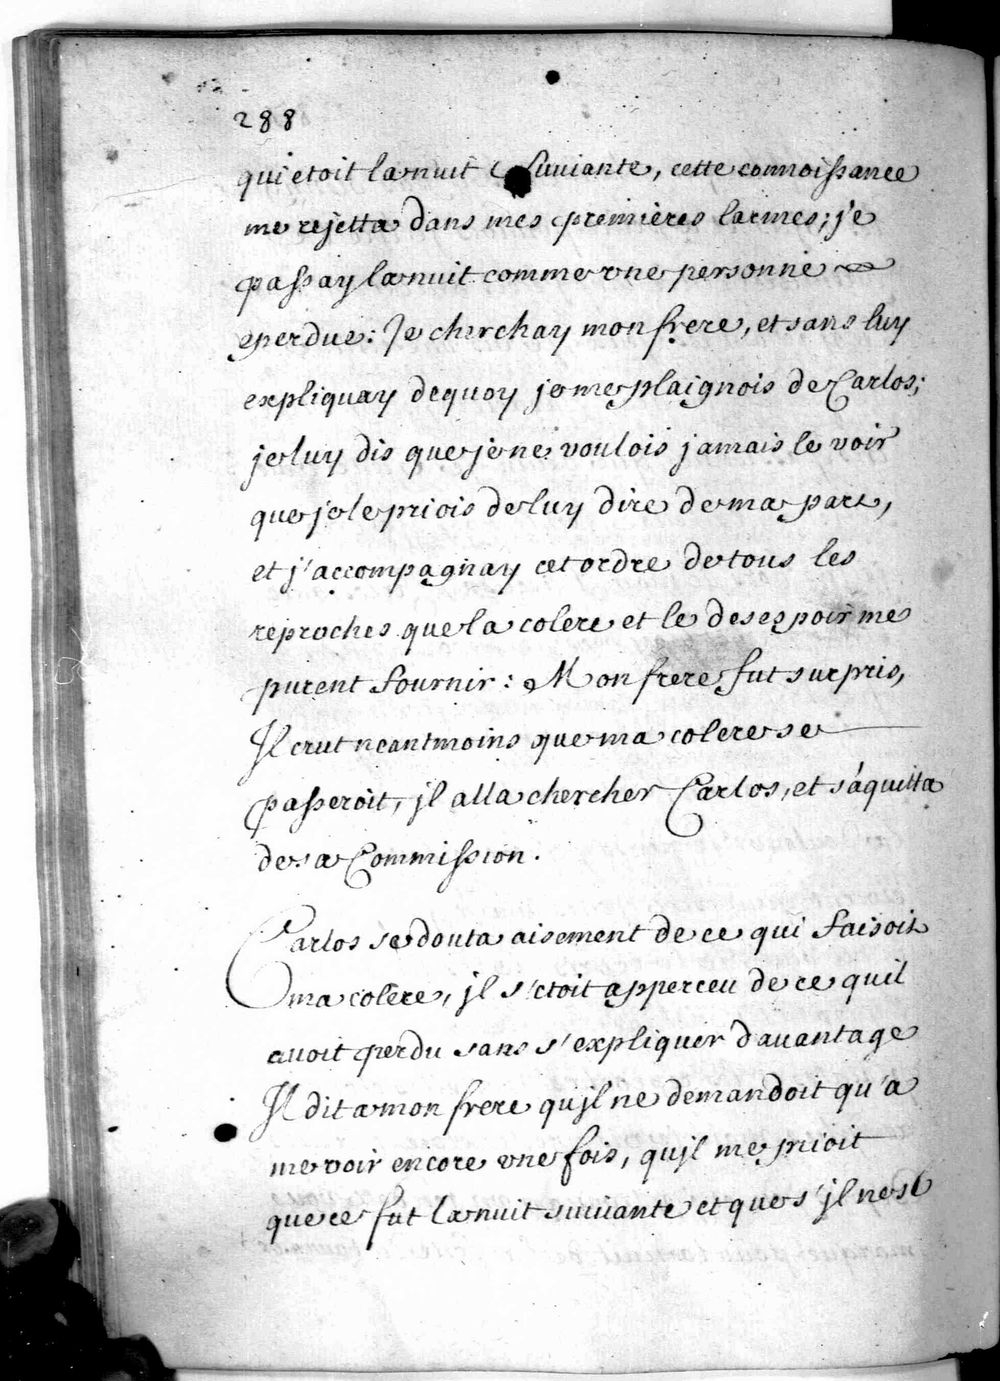 288
qui etoit la nuit suiuante, cette connoissance
me rejetta dans mes premières larmes; je
passay la nuit comme vne personne
eperdue: Je cherchay mon frere, et sans luy
expliquay dequoy je me plaignois de Carlos;
je luy dis que je ne voulois jamais le voir
que je le priois de luy dire de ma part,
et j'accompagnay cet ordre de tous les
reproches que la colere et le desespoir me
purent fournir: Mon frere fut surpris,
Il crut neantmoins que ma colere se
passeroit, jl alla chercher Carlos, et s'aquitta
de sa Commission.
Carlos se douta aisement de ce qui faisoit
ma colere, jl s'etoit apperceu de ce quil
auoit perdu sans s'expliquer d'auantage
Il dit a mon frere qujl ne demandoit qu'a
me voir encore vne fois, qujl me prioit
que ce fut la nuit suiuante et que s'jl ne s